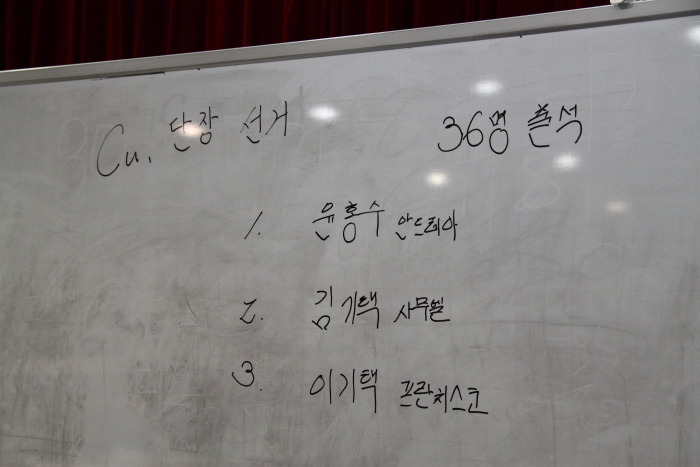 Cu. 단장 선거
36명 출석
1. 윤홍수 안드레아
2. 김기택 사무엘
3. 이기택 프란치스코